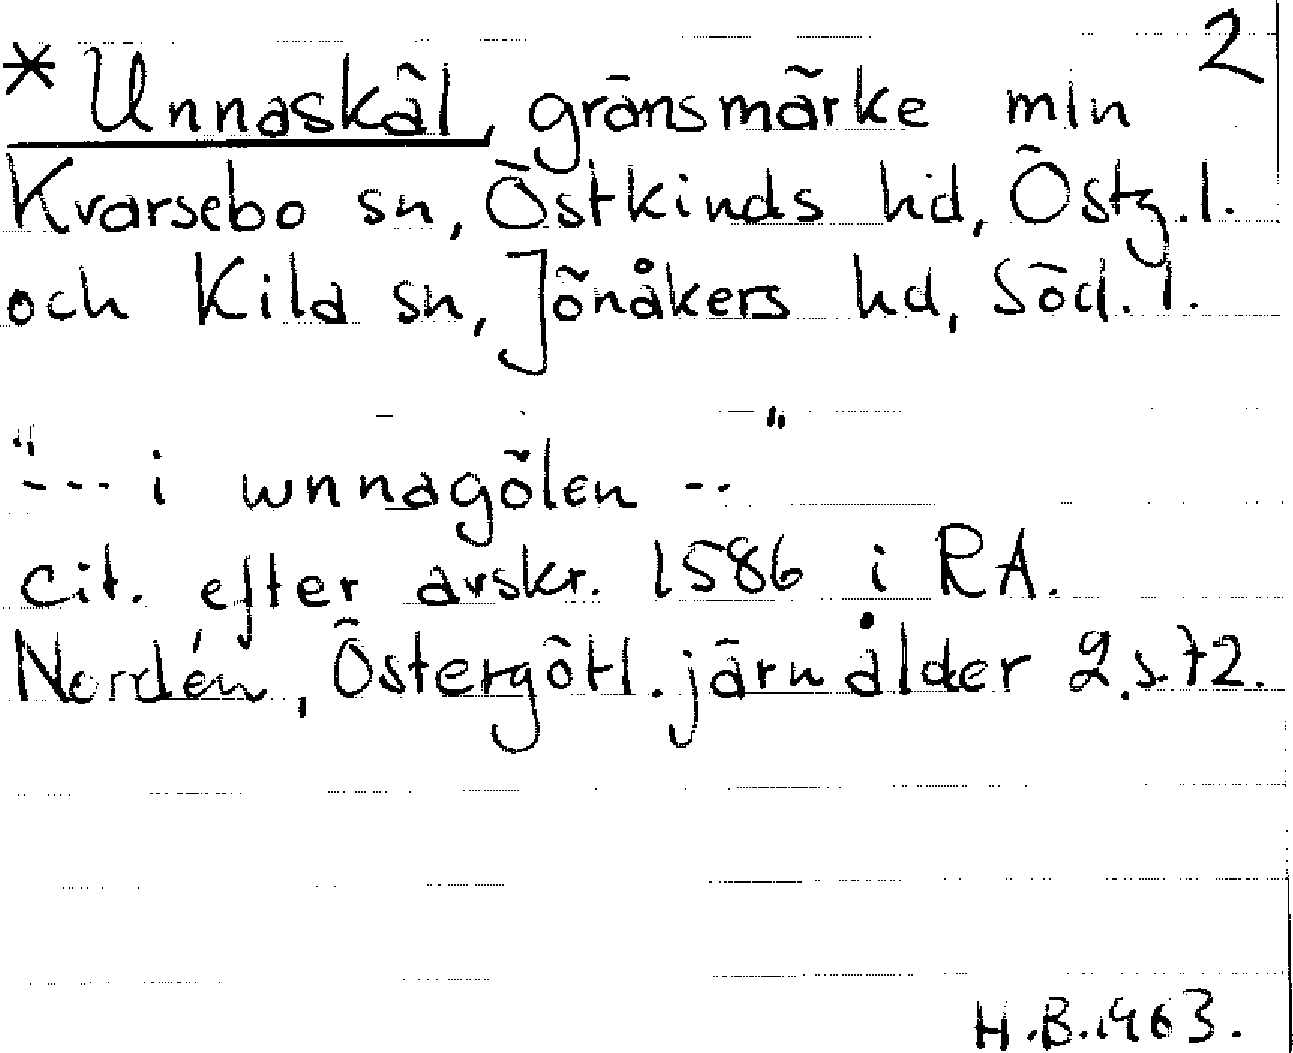 2
* Unnaskäl, gränsmärke mln
Kvarsebo sn, Östkinds hd, Östg.l.
och Kila sn, Jönåkers hd, Söd.l.
"--- i wnnagölen --"
cit. efter avskr. 1586 i RA.
Nordén, Östergötl. järnålder 2.s.72.
H.B.1963.